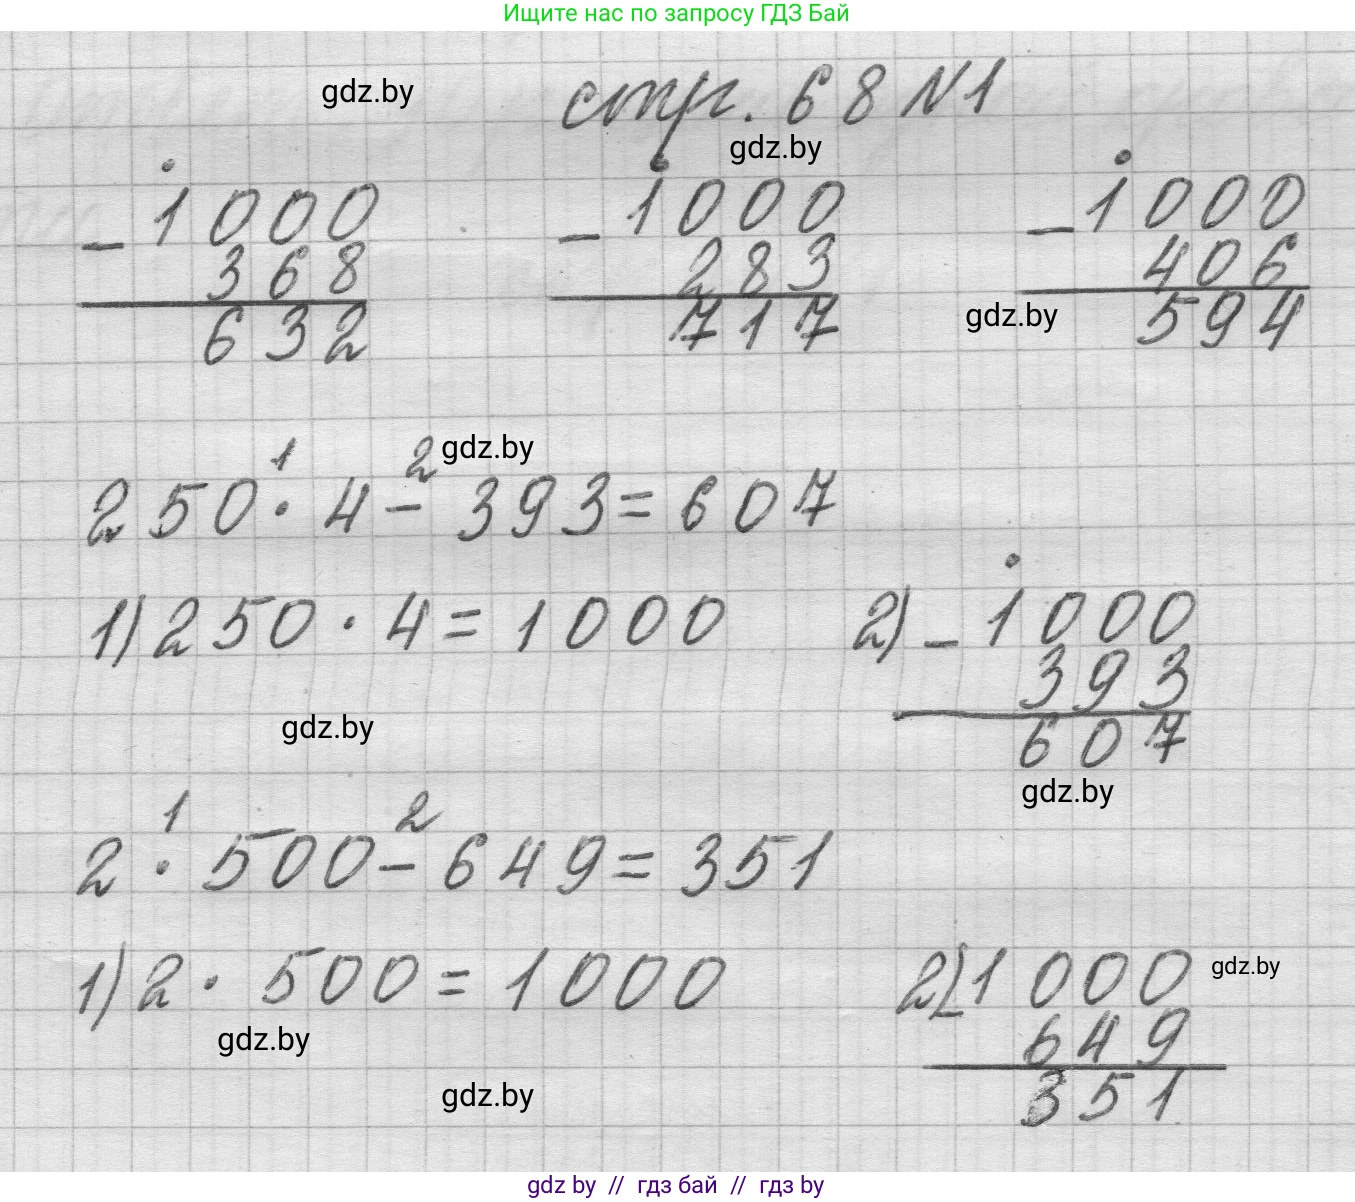 Ищите нас по запросу ГДЗ Бай
gdz.by
стр. 68 N1
gdz.by
_ 1000 _ 1000 _ 1000
368 283 406
632 717 594
gdz.by
1 2 gdz.by
250 · 4 - 393 = 607
1) 250 · 4 = 1000 2) _ 1000
393
607
gdz.by
gdz.by
1 2
2 · 500 - 649 = 351
1) 2 · 500 = 1000 2) _ 1000 gdz.by
649
351
gdz.by
gdz.by
gdz by // гдз бай // гдз by